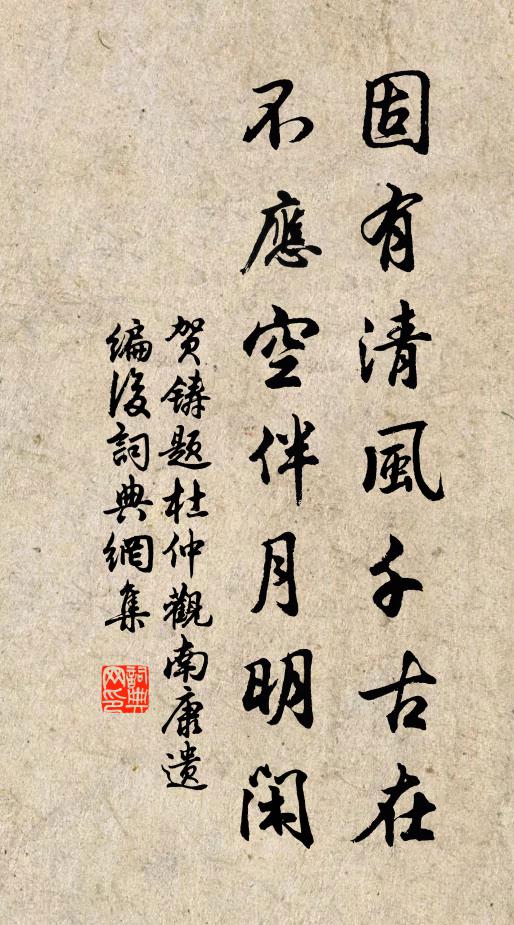 固有清風千古在
不應空伴月明閑
贺鑄題杜仲觀南康遺
編後詞典網集
詞典
网印